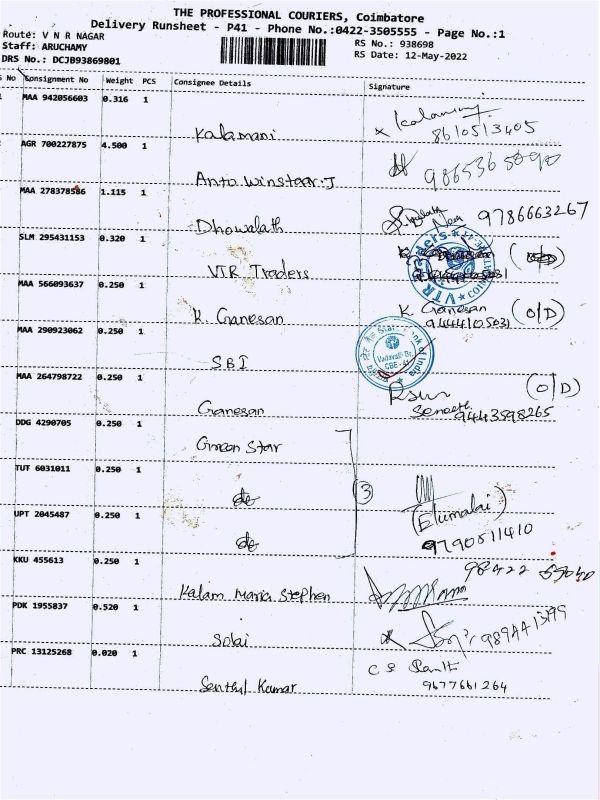 THE PROFESSIONAL COURIERS, Coimbatore
Delivery Runsheet - P41 - Phone No.:0422-3505555 - Page No.:1
Route: V N R NAGAR
Staff: ARUCHAMY
DRS No.: DCJB93869801
RS No.: 938698
RS Date: 12-May-2022
S No Consignment No Weight PCS Consignee Details Signature
MAA 942056603 0.316 1
Kalamani
8610513405
AGR 700227875 4.500 1
Anto Winstaar.J
MAA 278378586 1.115 1
Dhowalath 9786663267
SLM 295431153 0.320 1
VTR Traders
MAA 566093637 0.250 1
K. Ganesan K Ganesan (O/D)
9444105031
MAA 290923062 0.250 1
SBI
Vadavalli Br.
CBE - 41
MAA 264798722 0.250 1
(O/D)
Ganesan 9443598265
DDG 4290705 0.250 1
Green Star
TUT 6031011 0.250 1
do 3
(Elumalai)
UPT 2045487 0.250 1
do 9790511410
KKU 455613 0.250 1
Kalam Maria Stephen
PDK 1955837 0.520 1
Solai
PRC 13125268 0.020 1
Senthil Kumar 9677661264